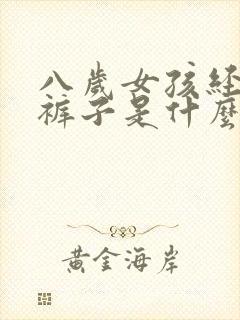 八歲女孩經
褲子是什麼
黃金海岸